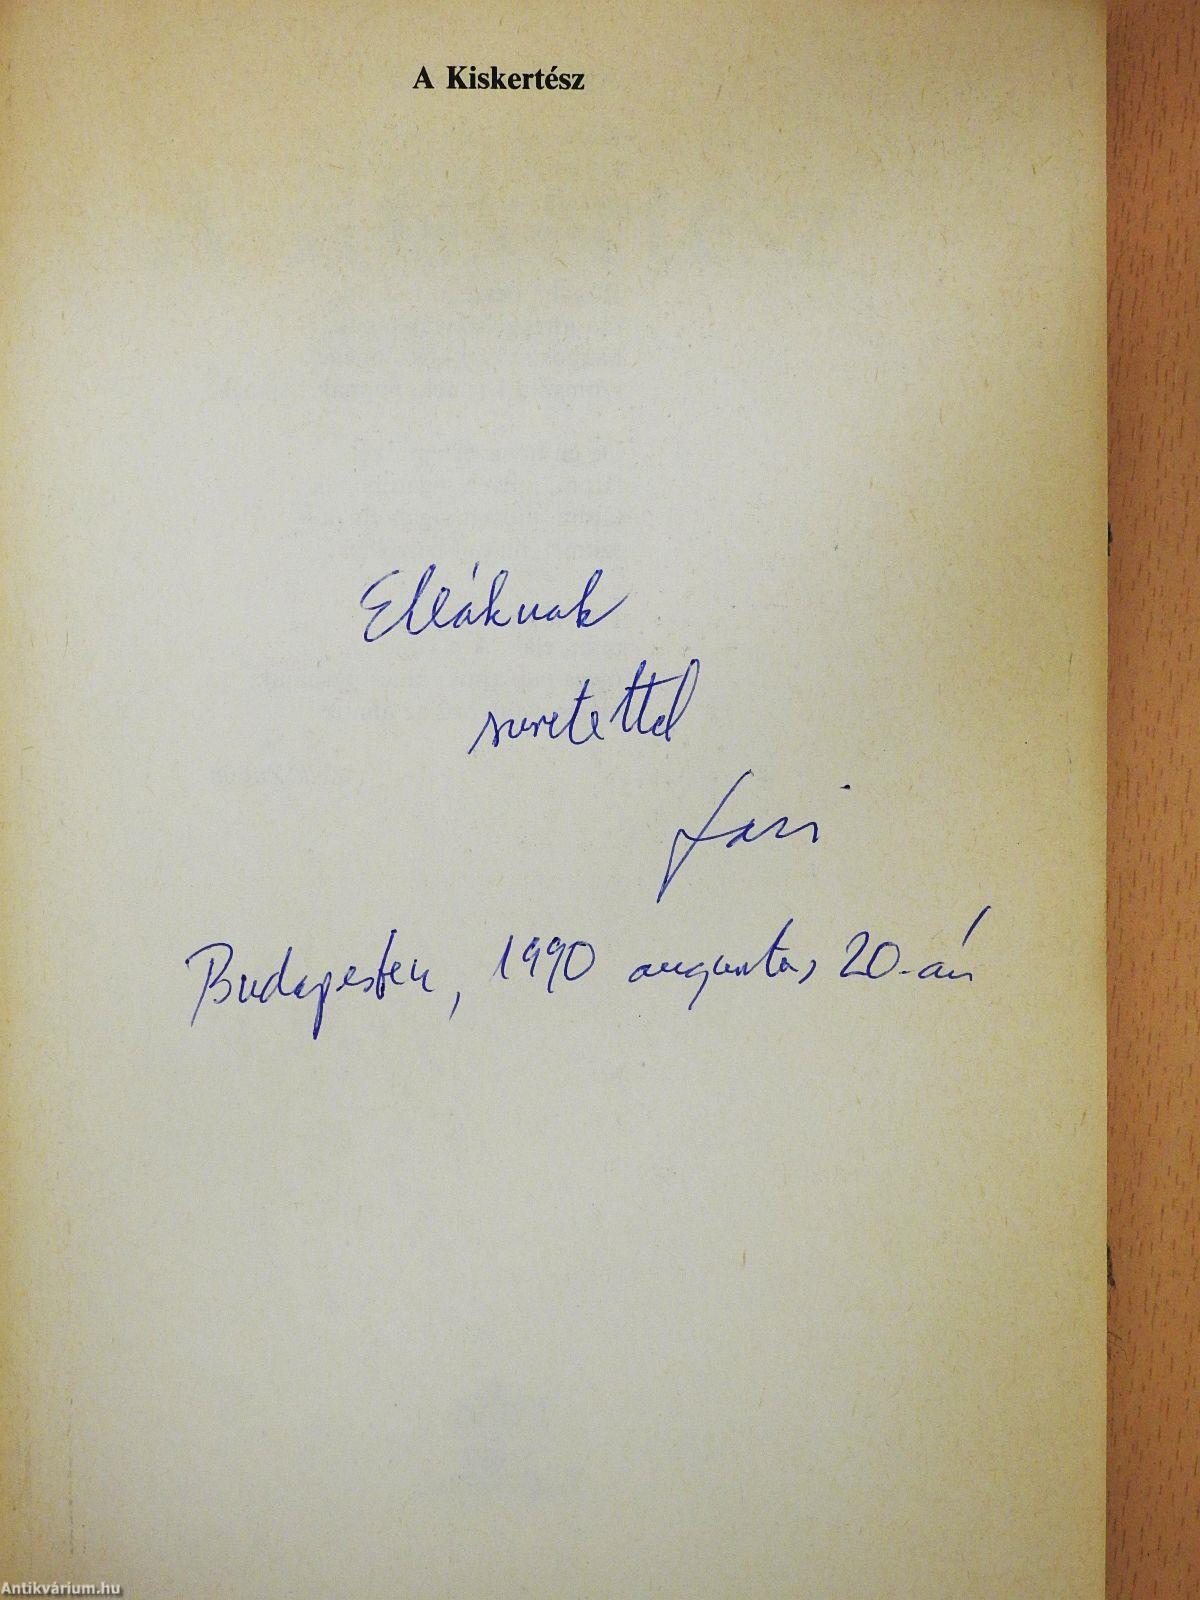 A Kiskertész
Elláknak
szeretettel
Budapesten, 1990 augusztus 20.-án
Antikvárium.hu